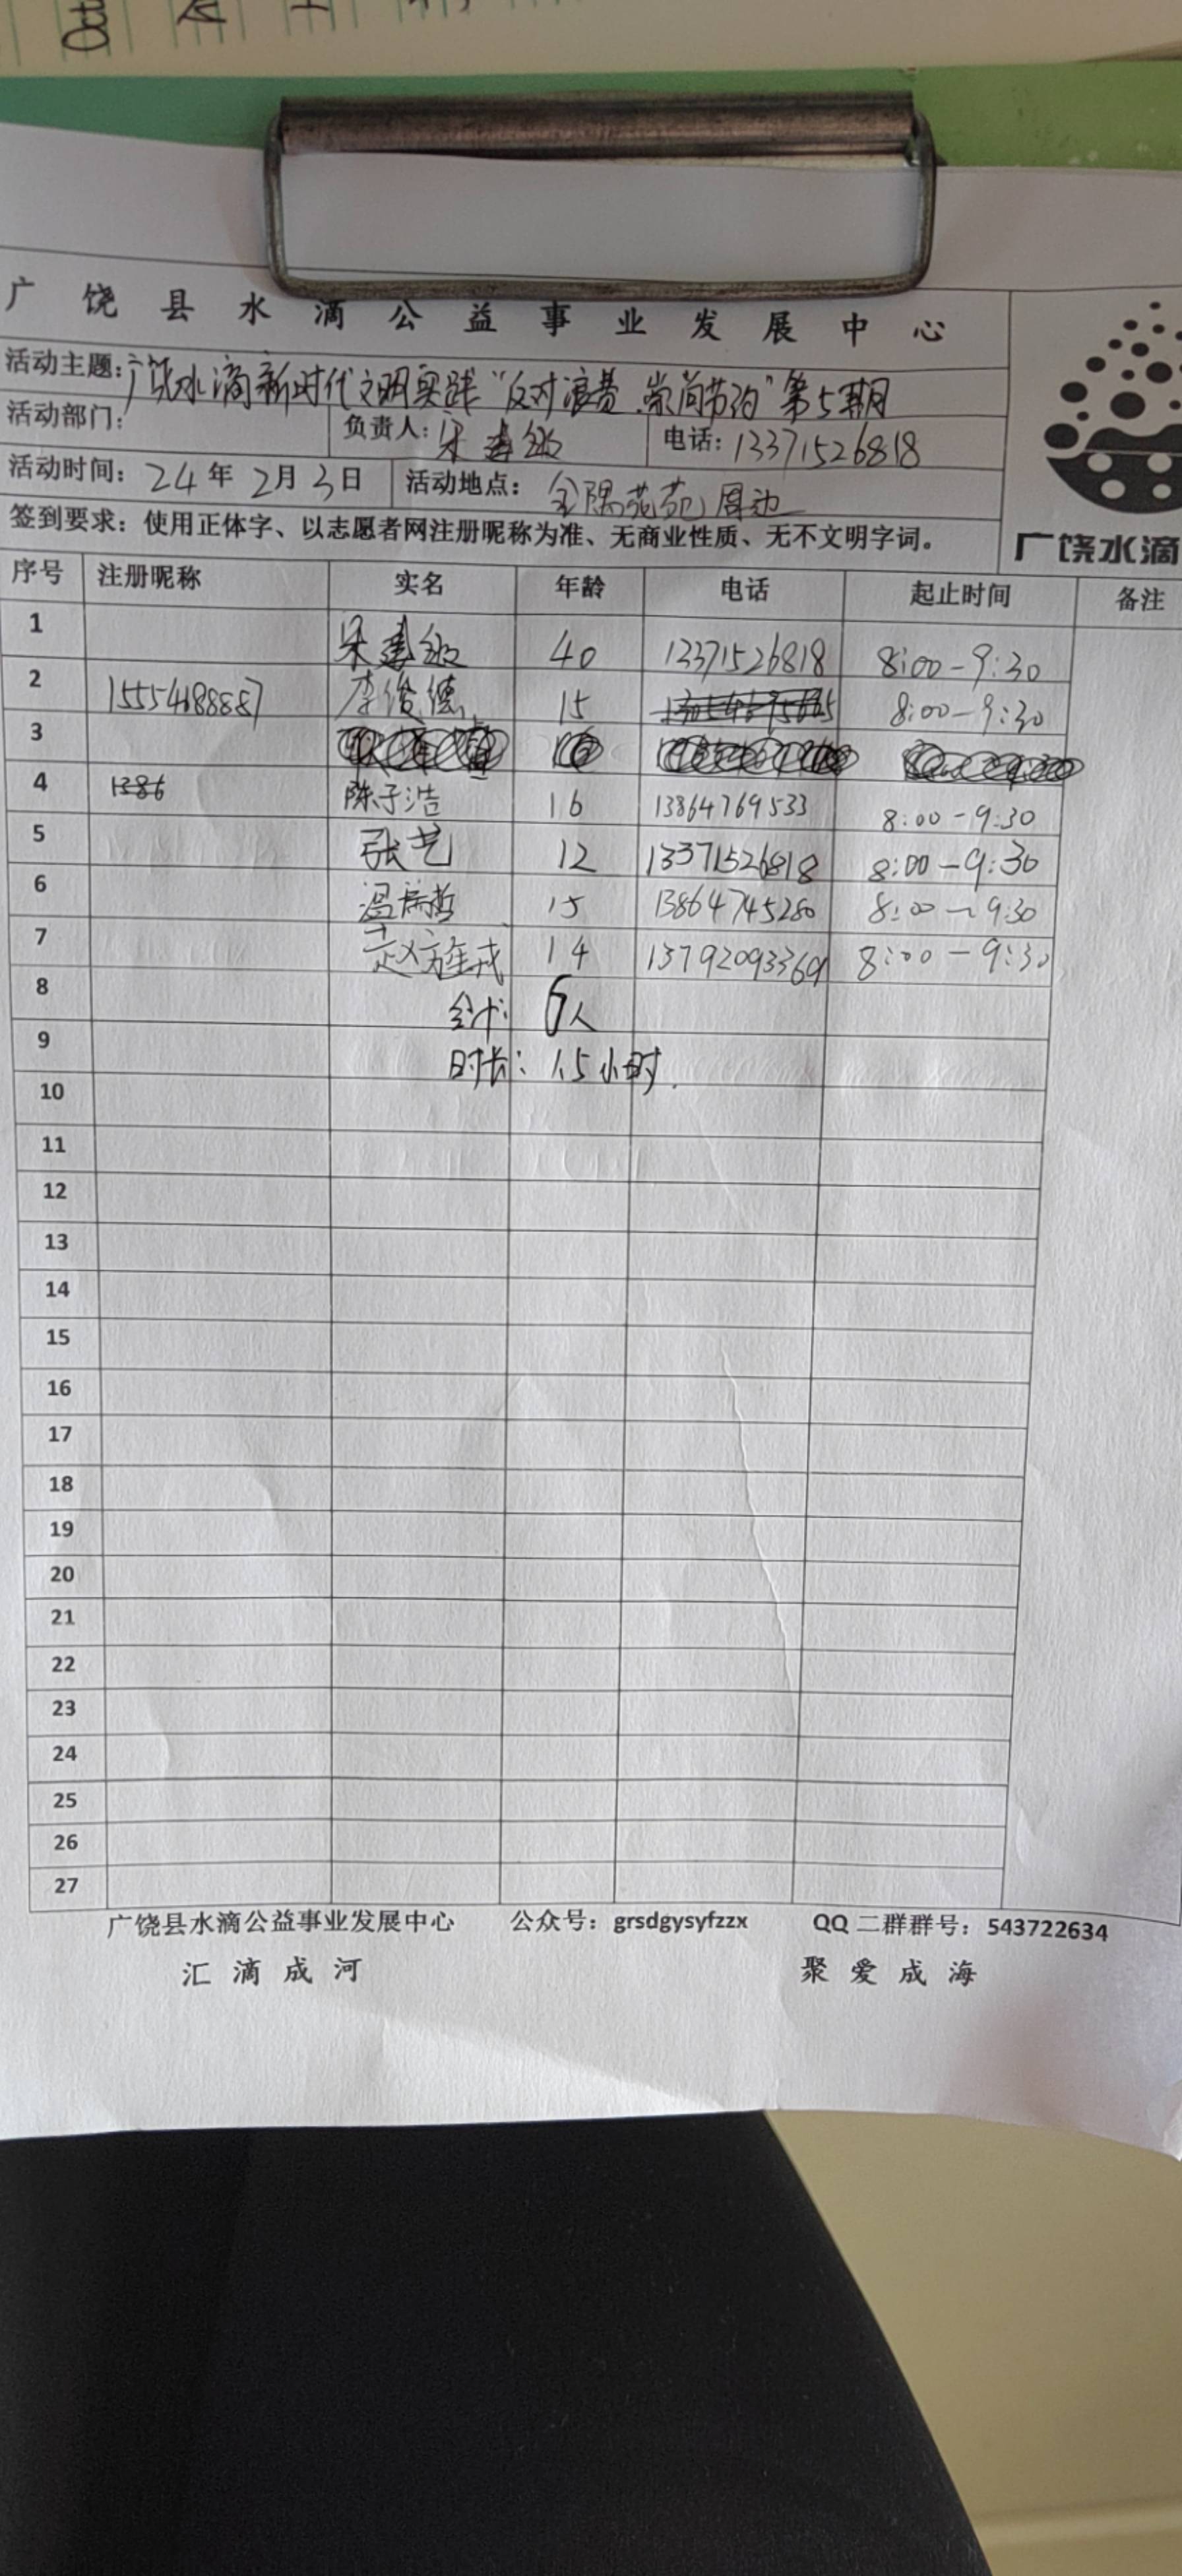 广饶县水滴公益事业发展中心
活动主题：广饶水滴新时代文明实践“反对浪费、崇尚节约”第5期
活动部门： 负责人：宋建 电话：13371526818
活动时间：24年2月3日 活动地点：金隅苑 周边
签到要求：使用正体字、以志愿者网注册昵称为准、无商业性质、无不文明字词。
广饶水滴
序号 注册昵称 实名 年龄 电话 起止时间 备注
1 宋建 40 13371526818 8:00-9:30
2 李俊德 15 8:00-9:30
3
4 1386 陈子浩 16 13864769533 8:00-9:30
5 张艺 12 13371526818 8:00-9:30
6 温瑞哲 15 13864745280 8:00~9:30
7 赵 14 8:00-9:30
8 合计: 6人
9 时长: 1.5小时.
10
11
12
13
14
15
16
17
18
19
20
21
22
23
24
25
26
27
广饶县水滴公益事业发展中心 公众号：grsdgysyfzzx QQ二群群号：543722634
汇滴成河 聚爱成海